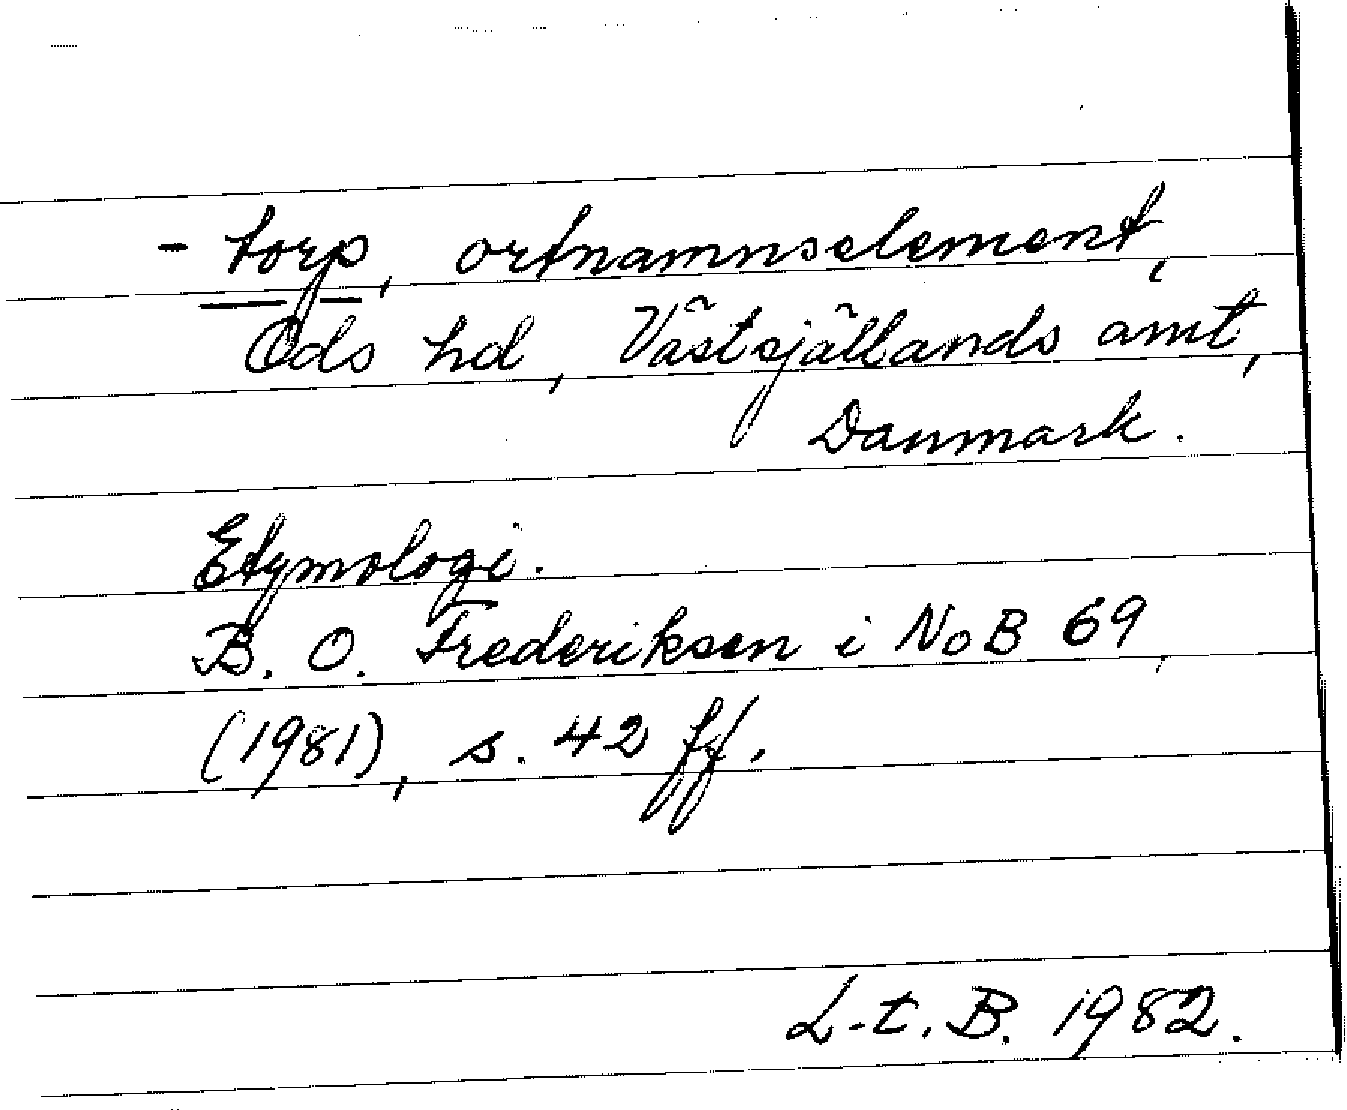 - torp, ortnamnselement,
Ods hd, Västsjällands amt,
Danmark.
Etymologi.
B. O. Frederiksen i NoB 69,
(1981), s. 42 ff.
L-t. B. 1982.